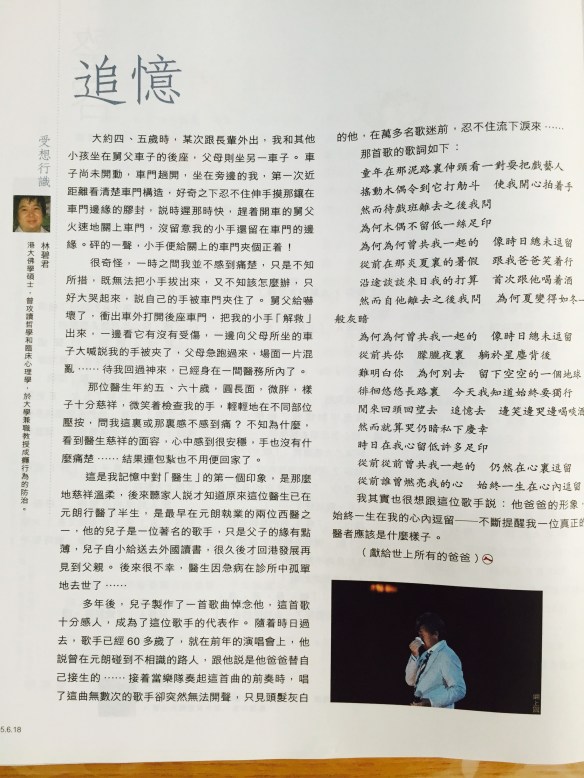 追憶
受想行識
林碧君
港大佛學碩士，曾攻讀哲學和臨床心理學，於大學兼職教授成癮行為的防治。
大約四、五歲時，某次跟長輩外出，我和其他
小孩坐在舅父車子的後座，父母則坐另一車子。車
子尚未開動，車門趟開，坐在旁邊的我，第一次近
距離看清楚車門構造，好奇之下忍不住伸手摸那鑲在
車門邊緣的膠封，說時遲那時快，趕着開車的舅父
火速地關上車門，沒留意我的小手還留在車門的邊
緣。砰的一聲，小手便給關上的車門夾個正着！
很奇怪，一時之間我並不感到痛楚，只是不知
所措，既無法把小手拔出來，又不知該怎麼辦，只
好大哭起來，說自己的手被車門夾住了。舅父給嚇
壞了，衝出車外打開後座車門，把我的小手「解救」
出來，一邊看它有沒有受傷，一邊向父母所坐的車
子大喊說我的手被夾了，父母急跑過來，場面一片混
亂……待我回過神來，已經身在一間醫務所內了。
那位醫生年約五、六十歲，圓長面，微胖，樣
子十分慈祥，微笑着檢查我的手，輕輕地在不同部位
壓按，問我這裏或那裏感不感到痛？不知為什麼，
看到醫生慈祥的面容，心中感到很安穩，手也沒有什
麼痛楚……結果連包紮也不用便回家了。
這是我記憶中對「醫生」的第一個印象，是那麼
地慈祥溫柔，後來聽家人說才知道原來這位醫生已在
元朗行醫了半生，是最早在元朗執業的兩位西醫之
一，他的兒子是一位著名的歌手，只是父子的緣有點
薄，兒子自小給送去外國讀書，很久後才回港發展再
見到父親。後來很不幸，醫生因急病在診所中孤單
地去世了……
多年後，兒子製作了一首歌曲悼念他，這首歌
十分感人，成為了這位歌手的代表作。隨着時日過
去，歌手已經60多歲了，就在前年的演唱會上，他
說曾在元朗碰到不相識的路人，跟他說是他爸爸替自
己接生的……接着當樂隊奏起這首曲的前奏時，唱
了這曲無數次的歌手卻突然無法開聲，只見頭髮灰白
的他，在萬多名歌迷前，忍不住流下淚來……
那首歌的歌詞如下：
童年在那泥路裏伸頭看一對耍把戲藝人
搖動木偶令到它打觔斗　使我開心拍着手
然而待戲班離去之後我問
為何木偶不留低一絲足印
為何為何曾共我一起的　像時日總未逗留
從前在那炎夏裏的暑假　跟我爸爸笑着行
沿途談談來日我的打算　首次跟他喝着酒
然而自他離去之後我問　為何夏變得如冬一
般灰暗
為何為何曾共我一起的　像時日總未逗留
從前共你　朦朧夜裏　躺於星塵背後
難明白你　為何別去　留下空空的一個地球
徘徊悠悠長路裏　今天我知道始終要獨行
閒來回頭回望去　追憶去　邊笑邊哭邊喝啖酒
然而就算哭仍暗私下慶幸
時日在我心留低許多足印
從前從前曾共我一起的　仍然在心裏逗留
從前誰曾燃亮我的心　始終一生在心內逗留
我其實也很想跟這位歌手說：他爸爸的形象，
始終一生在我的心內逗留——不斷提醒我一位真正的
醫者應該是什麼樣子。
（獻給世上所有的爸爸）
5.6.18